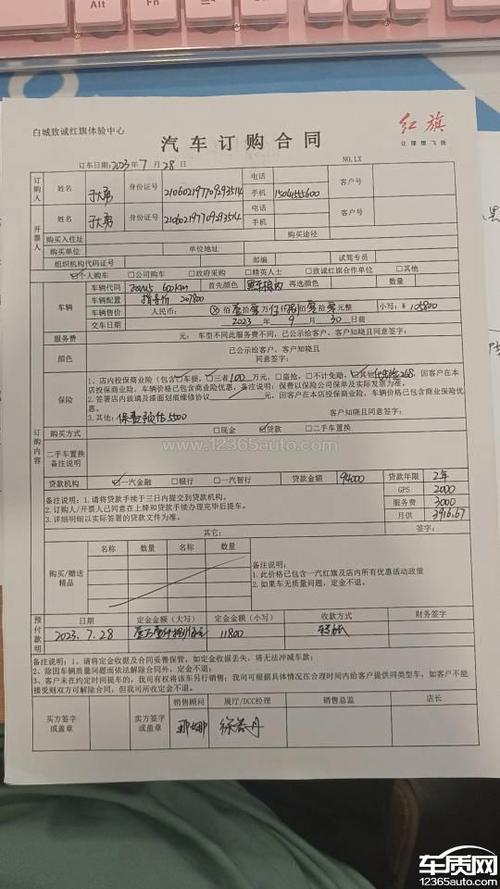 Alt
Fn
白城致诚红旗体验中心
红旗
让理想飞扬
汽车订购合同
订车日期:2023年7月28日 NO.LX
订购人 姓名 身份证号 电话 手机 客户号
开票人 姓名 身份证号 电话 手机 客户号
购买人住址 购买途径
购买单位 单位地址
组织机构代码证号 邮编 试驾专员
个人购车 □公司购车 □政府采购 □精英人士 □致诚红旗合作单位 □其他
车辆 车辆代码 600km 首先颜色 再选颜色 数量
车辆配置 指导价 207800
车辆售价 人民币: 小写:
交车日期 2023年9月30日前
服务费 元; 车型不同此服务费不同, 已公示给客户、客户知晓且同意签字:
颜色 已公示给客户、客户知晓且同意签字:
保险
1、店内投保商业险(包含□车损、□三者100万元, □盗抢, □不计免赔, □其他
本店投保商业险, 车辆价格已包含商业保险优惠, 备注: 保费以保险公司保单及实际发票为准。
3、其他: 保费预估5500 客户知晓且同意签字:
订购内容
购买方式 □现金 贷款 □二手车置换
二手车置换备注说明
贷款机构 一汽金融 □银行 □一汽智行 贷款金额 94000 贷款年限 2年
备注说明: 1. 请将贷款手续于三日内提交到贷款机构。 GPS 2000
2. 订购人/开票人已同意在上牌和贷款手续办理完毕后提车。 服务费 3000
3. 详细明细以实际签署的贷款文件为准。 月供 3916.67
其它: 签字:
购买/赠送精品 名称 数量 名称 数量
备注说明:
1. 此价格已包含一汽红旗及店内所有优惠活动政策
2. 如果车无质量问题, 定金不退。
预付款明 日期 定金金额(大写) 定金金额(小写) 收款方式 财务签字
2023.7.28 11800
备注说明: 1、请将定金收据及合同妥善保管, 如定金收据丢失, 将无法冲减车款;
2、除因车辆质量问题而依法解除合同外, 定金不退;
3、客户未在约定时间提车的, 我司有权将该车另行销售; 我司可根据具体情况在合理时间内给客户提供同类型车, 如客户不能
接受则双方可解除合同, 但我司所收定金不退。
买方签字或盖章 卖方签字或盖章 销售顾问 展厅/DCC经理 销售总监 店长
www.12365auto.com
车质网
12365auto.com